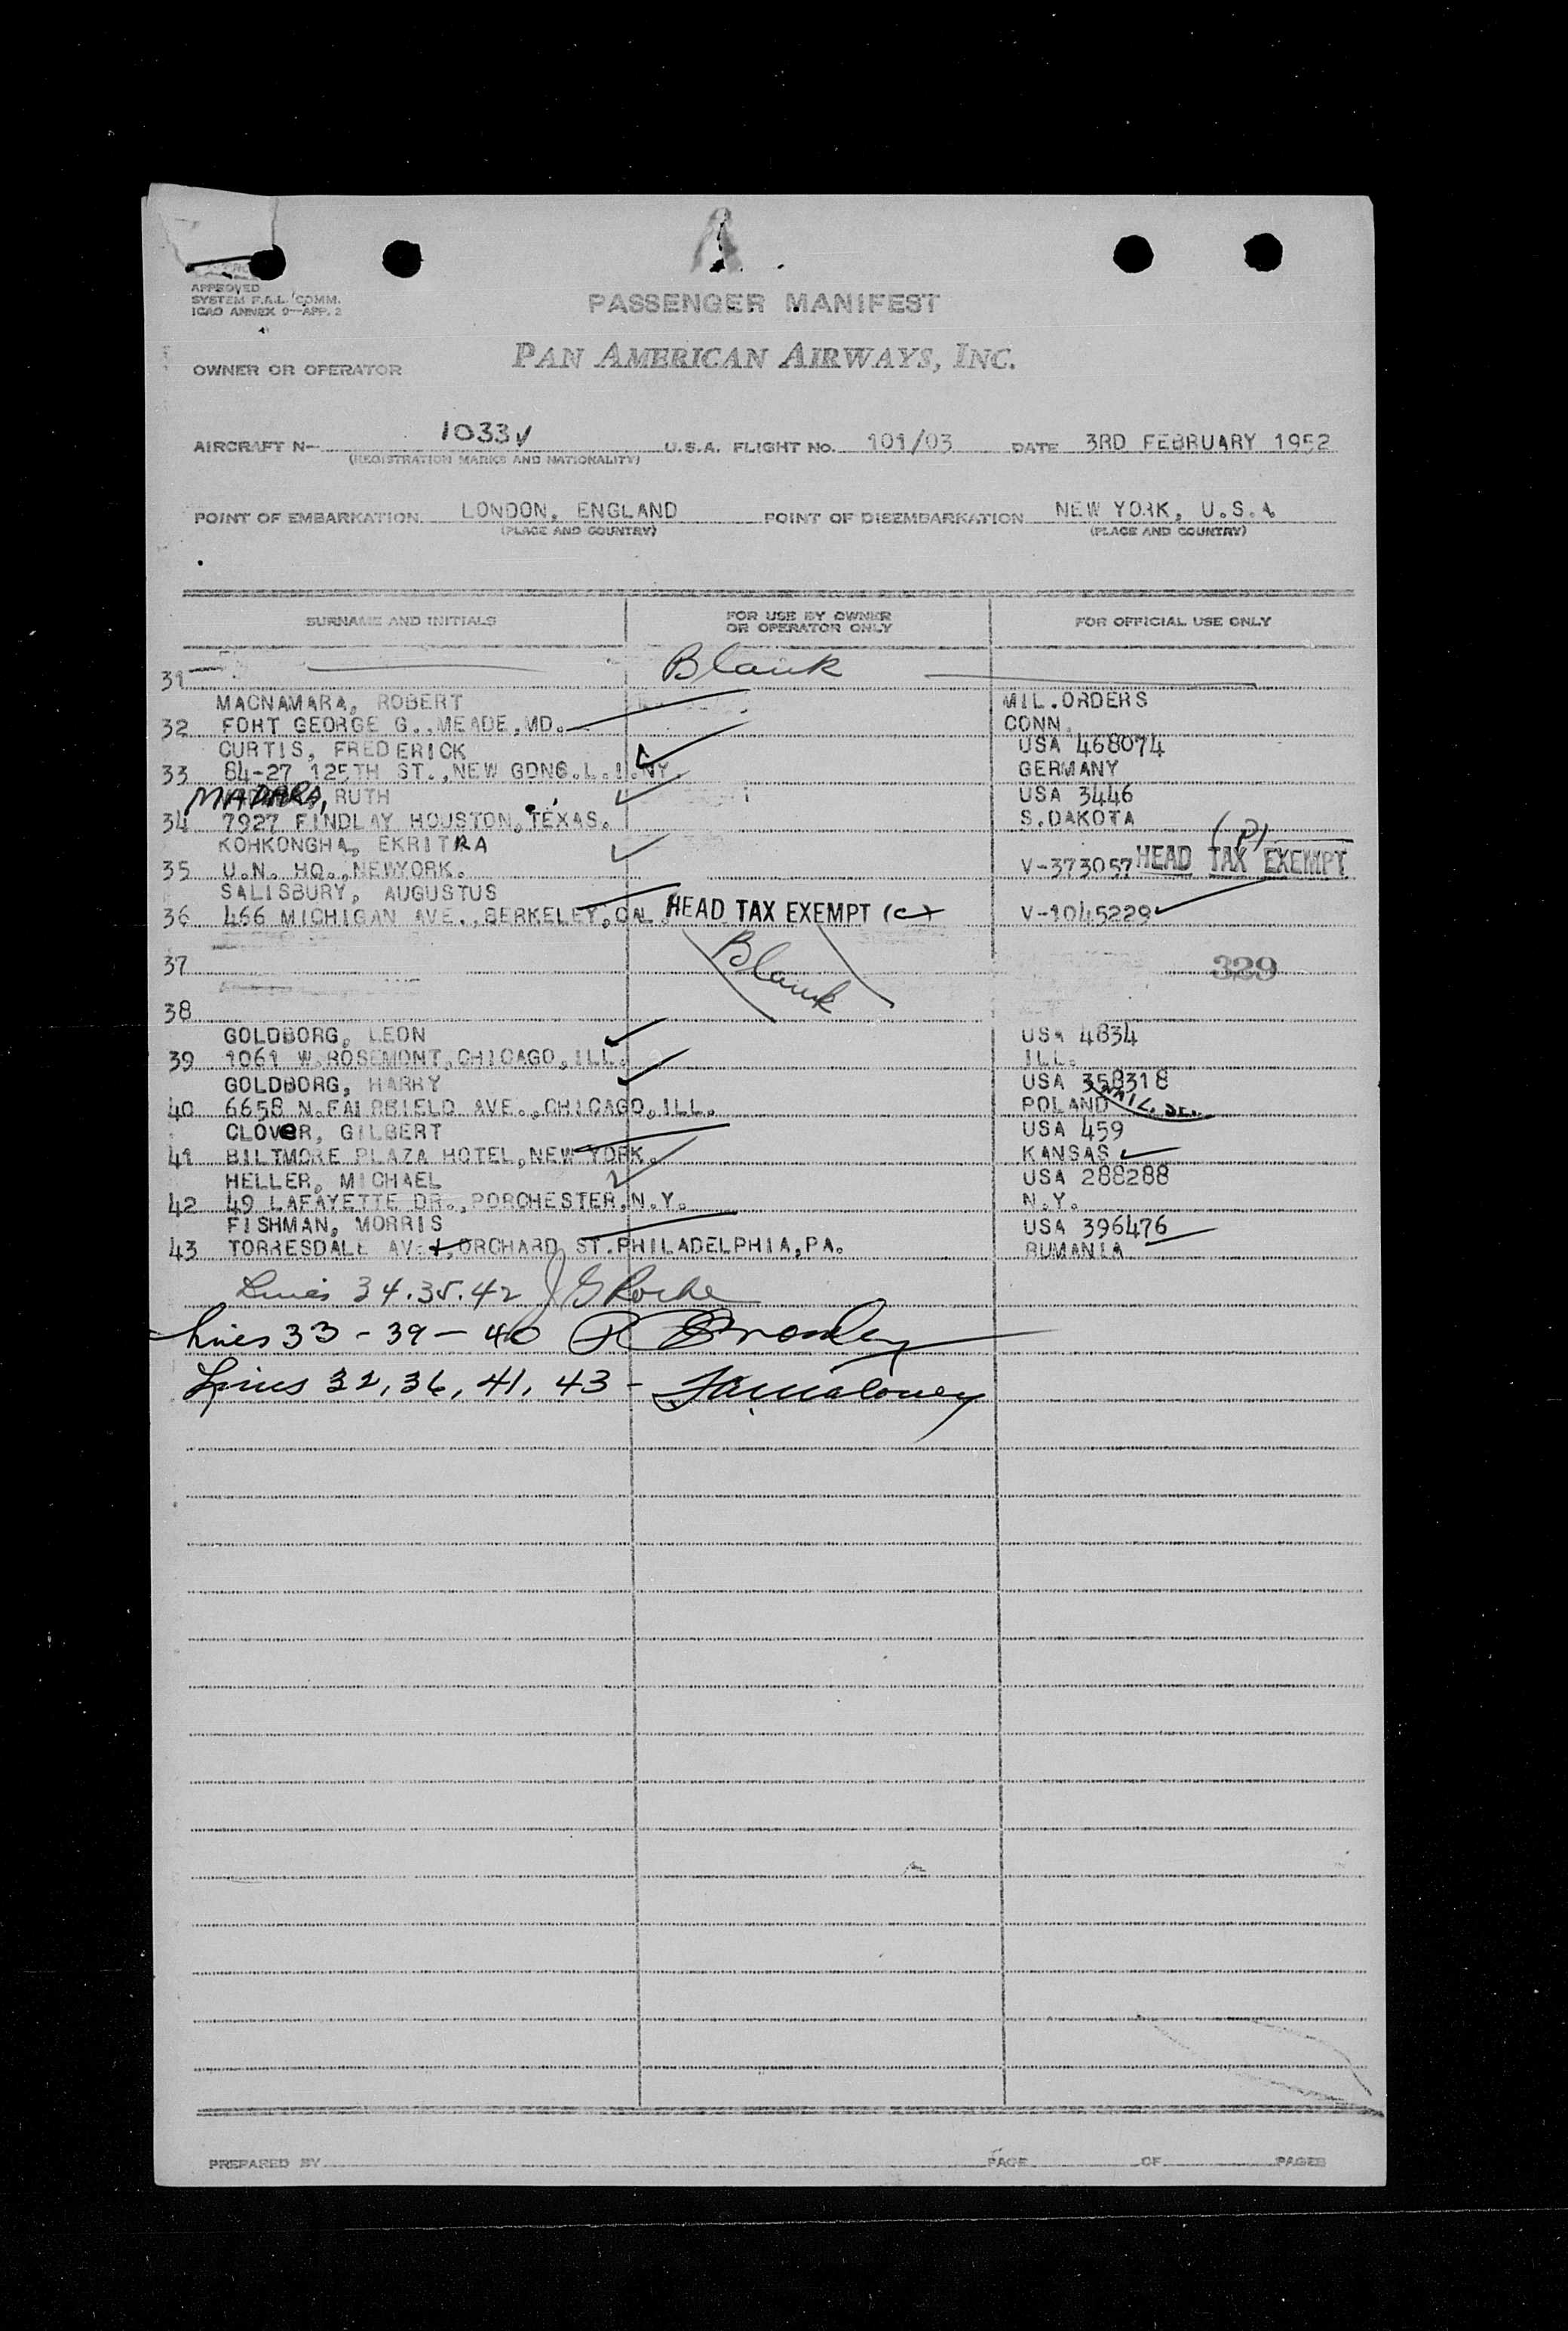 APPROVED
SYSTEM F.A.L. COMM.
ICAO ANNEX 9-APP. 2
PASSENGER MANIFEST
OWNER OR OPERATOR PAN AMERICAN AIRWAYS, INC.
AIRCRAFT N- 1033V U.S.A. FLIGHT NO. 101/03 DATE 3RD FEBRUARY 1952
(REGISTRATION MARKS AND NATIONALITY)
POINT OF EMBARKATION LONDON, ENGLAND POINT OF DISEMBARKATION NEW YORK, U.S.A.
(PLACE AND COUNTRY) (PLACE AND COUNTRY)
SURNAME AND INITIALS FOR USE BY OWNER OR OPERATOR ONLY FOR OFFICIAL USE ONLY
31 Blank
MACNAMARA, ROBERT MIL.ORDERS
32 FORT GEORGE G.,MEADE,MD. CONN.
CURTIS, FREDERICK USA 468074
33 84-27 125TH ST.,NEW GDNS.L.I.NY. GERMANY
MADARA, RUTH USA 3446
34 7927 FINDLAY HOUSTON,TEXAS. S.DAKOTA
KOHKONGHA, EKRITRA (P)
35 U.N. HQ.,NEWYORK. V-373057 HEAD TAX EXEMPT
SALISBURY, AUGUSTUS
36 466 MICHIGAN AVE.,BERKELEY,CAL. HEAD TAX EXEMPT (c) V-1045229
37 Blank 329
38
GOLDBORG, LEON USA 4834
39 1061 W.ROSEMONT,CHICAGO,ILL. ILL.
GOLDBORG, HARRY USA 358318
40 6658 N.FAIRFIELD AVE.,CHICAGO,ILL. POLAND
CLOVER, GILBERT USA 459
41 BILTMORE PLAZA HOTEL,NEW YORK. KANSAS
HELLER, MICHAEL USA 288288
42 49 LAFAYETTE DR.,PORCHESTER,N.Y. N.Y.
FISHMAN, MORRIS USA 396476
43 TORRESDALE AVE+,ORCHARD ST.PHILADELPHIA,PA. RUMANIA
Lines 34.35.42 J G Roche
Lines 33-39-40
Lines 32,36,41,43-
PREPARED BY PAGE OF PAGES